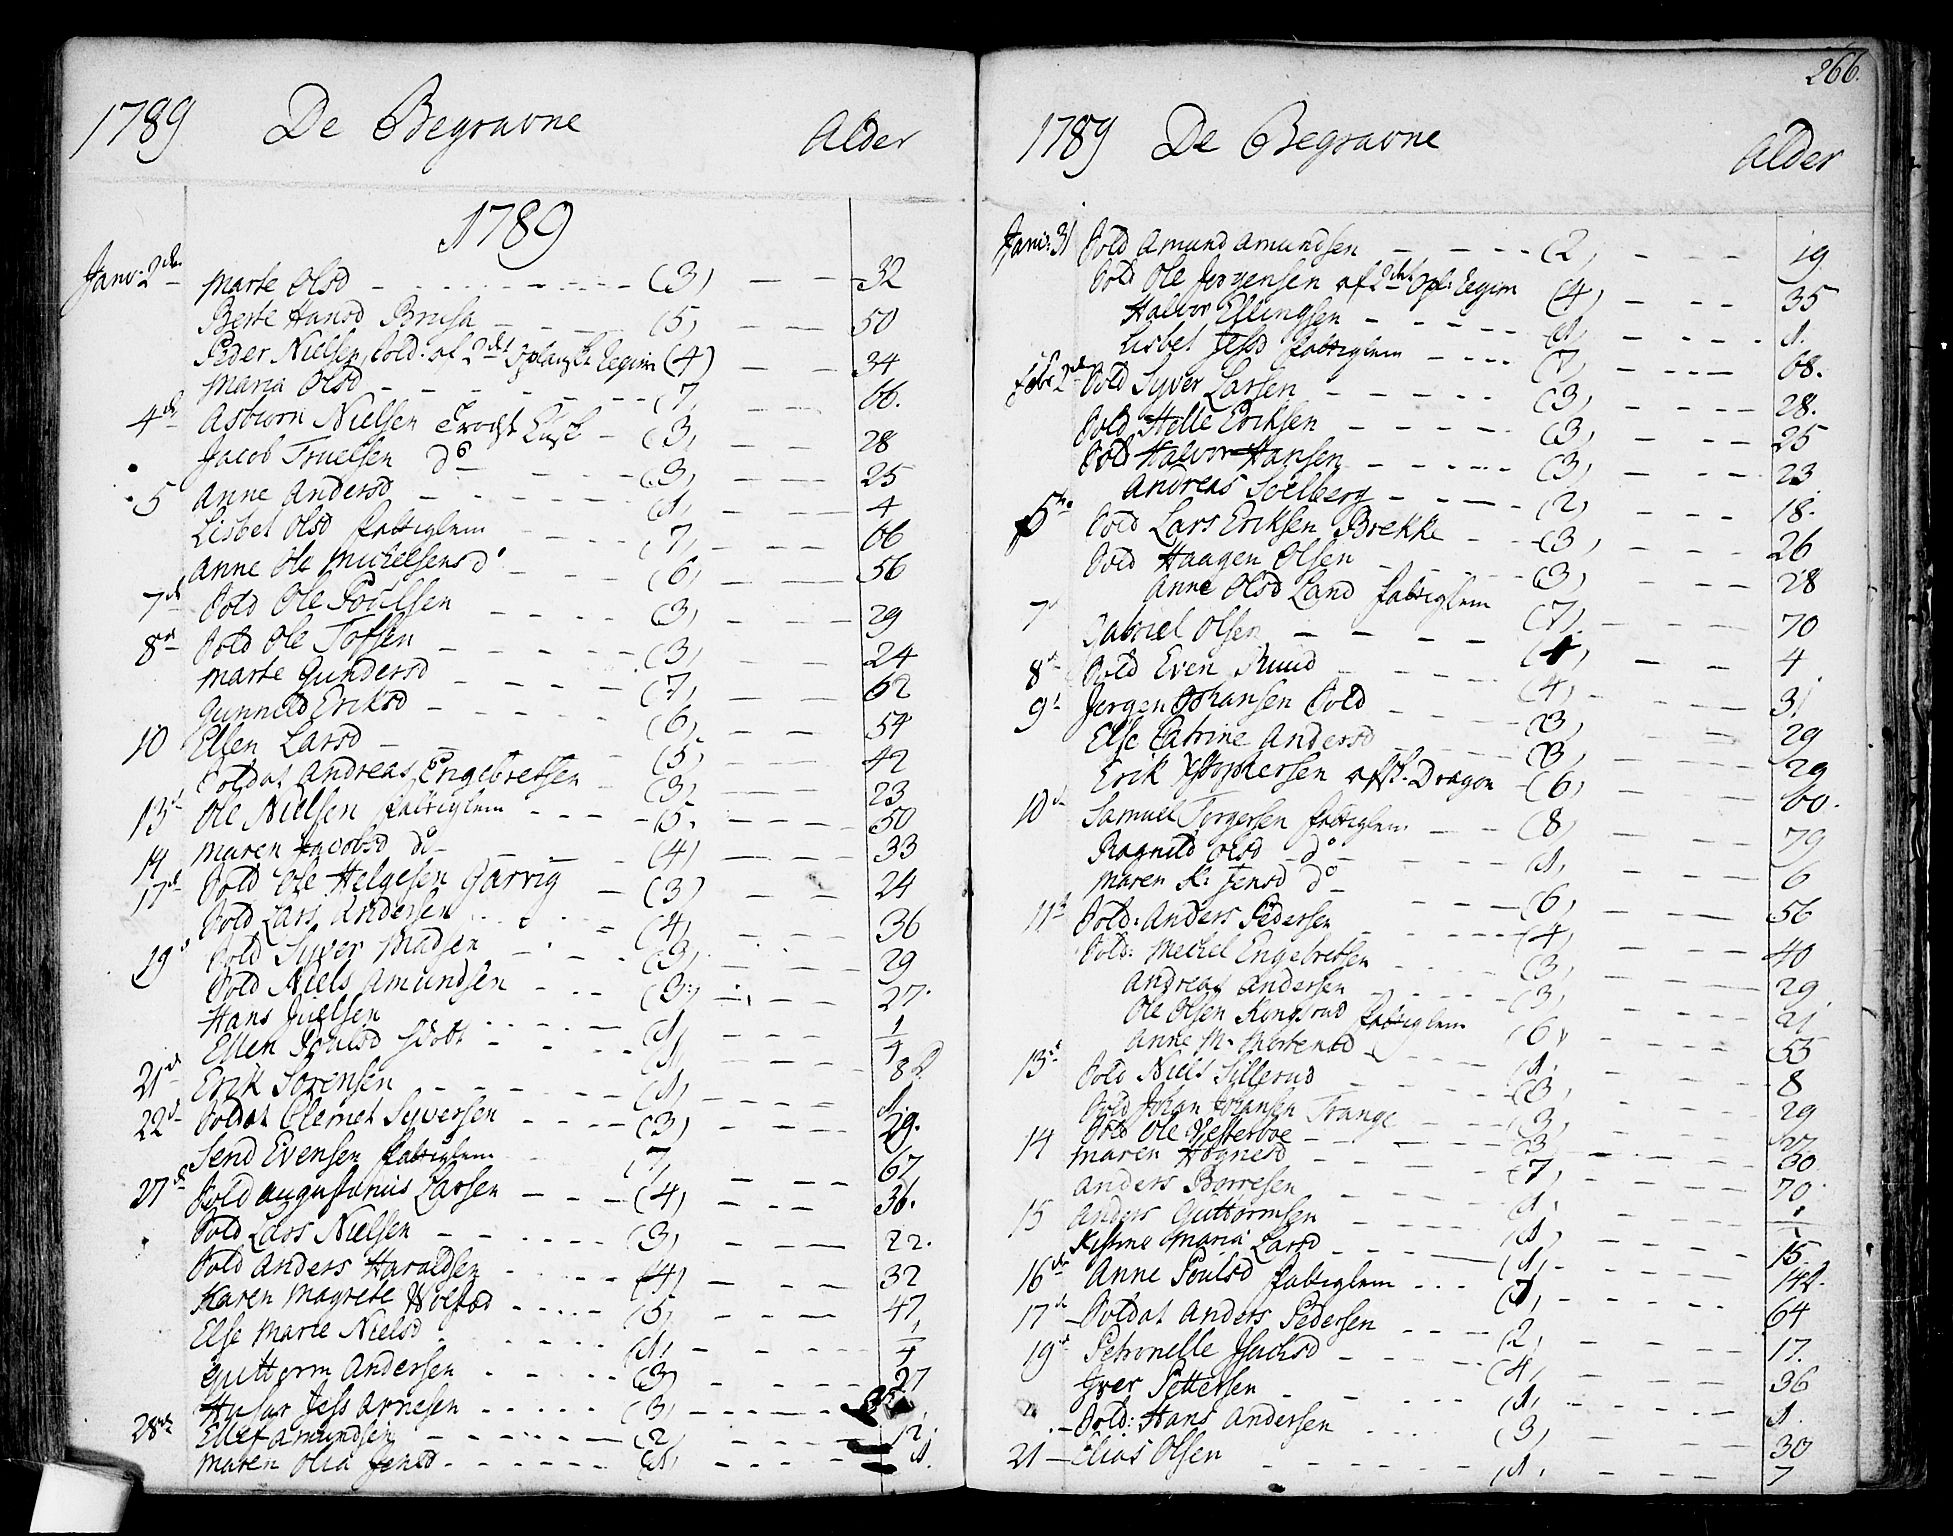 1789 De Begravne Alder
1789
Janv: 2de Marte Olsd (3) 32
Berte Hansd Brusa (5) 50
Peder Nielsen, Sold: af 2det Regim (4) 34
Maria Olsd (7) 66.
4de Asbiorn Nielsen (3) 28
Jacob Truelsen do (3) 25
5 Anne Andersd (1) 4
Lisbet Olsd fattiglem (7) 66
Anne Ole Michelsensd (6) 56
7de Sold Ole Poulsen (3) 29
8de Sold Ole Tofsen (3) 24
Marte Gundersd (7) 62
Gunnild Eriksd (6) 54
10 Ellen Larsd (5) 42
Soldat Andreas Engebretsen (3) 23
13d Ole Nielsen fattiglem (5) 50
14 Maren Jacobsd do (4) 33
17de Sold Ole Helgesen Garvig (3) 24
Sold Lars Andersen (4) 36
19 Sold Syver Madsen (3) 29
Sold Niels Amundsen (3) 27.
Hans Juelsen (1) 1/4
Ellen Poulsd (1) 8
21d Erik Sørensen (1) 1
22d Soldat Clemet Syversen (3) 29.
Send Evensen fattiglem (7) 67
27de Sold Augustinus Larsen (4) 36.
Sold Lars Nielsen (3) 22.
Sold Anders Haraldsen (4) 32
Karen Magrete Wolstad (5) 47
Else Marie Nielsd (1) 1/4
Guttorm Andersen (3) 27
Husar Jess Arnesen (3)
28de Ellef Amundsen (2) 12
Maren Olia Jensd (1) 1.
266.
1789 De Begravne Alder
Janv: 31 Sold Amund Amundsen (2) 19
Sold Ole Jørgensen af 2det Opl: Regim (4) 35
Halvor Ellingsen (1) 1.
Lisbet Jessd fattiglem (7) 68.
Febr 2de Sold Syver Larsen (3) 28.
Sold Helle Eriksen (3) 25
Sold Halvor Hansen (3) 23
Andreas Soelberg (2) 18.
5te Sold Lars Eriksen Brekke (3) 26
Sold Haagen Olsen (3) 28
Anne Olsd Land fattiglem (7) 70
7 Gabriel Olsen (1) 4
8d Sold Even Ruud (4) 31
9d Jørgen Johansen Sold (3) 29
Else Catrine Andersd (3) 29
Erik Christophersen afsk. Dragon (6) 60.
10de Samuel Torgersen fattiglem (8) 79
Ragnild Olsd do (1) 6
Maren K: Jensd do (6) 56
11d Sold: Anders Pedersen (4) 40
Sold: Mechel Engebretsen (3) 29
Andreas Andersen (3) 21
Ole Olsen Kongsrud fattiglem (6) 55
Anne M. Mortensd (1) 8
13de Sold Niels Sillerud (3) 29
Sold Johan Johansen Trange (3)
14 Sold Ole Vesterboe (3) 30
Maren Hognesd (7) 70
Anders Børresen (1)
15 Anders Guttormsen (1)
Kistine Maria Larsd (1)
16de Anne Poulsd fattiglem (7) 64
17de Soldat Anders Pedersen (2) 17.
19de Petronelle Isachsd (4) 36
Iver Pettersen (1) 1.
Sold: Hans Andersen (3) 30
21 Elias Olsen (1) 7